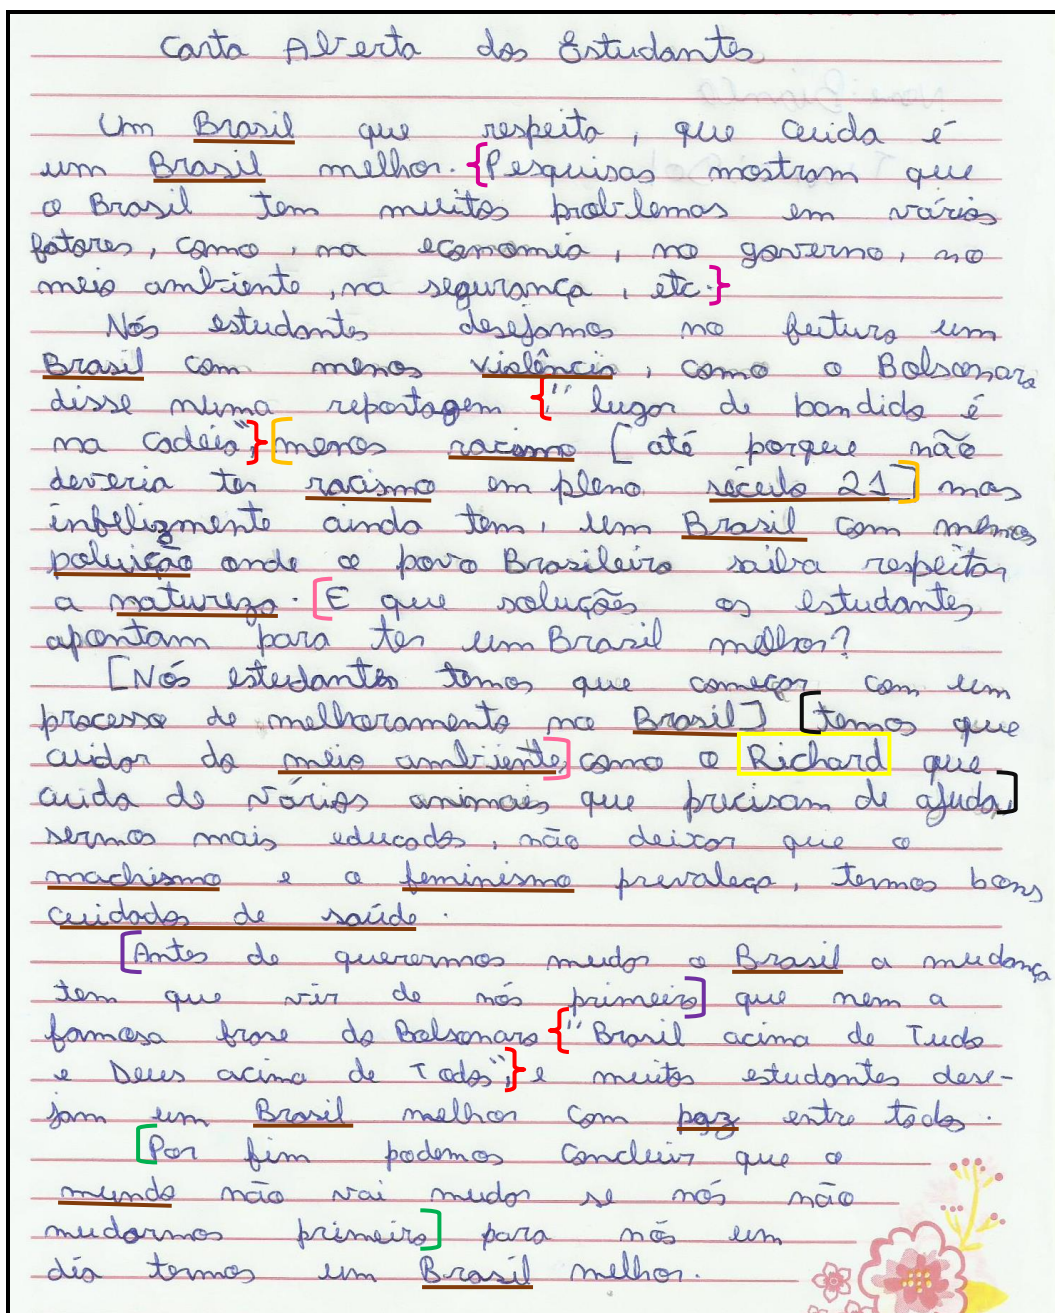 Carta Aberta dos Estudantes
Um Brasil que respeita, que cuida é
um Brasil melhor. {Pesquisas mostram que
o Brasil tem muitos problemas em vários
fatores, como, na economia, no governo, no
meio ambiente, na segurança, etc.}
Nós estudantes desejamos no futuro um
Brasil com menos violência, como o Bolsonaro
disse numa reportagem {"lugar de bandido é
na cadeia",} [menos racismo [até porque não
deveria ter racismo em pleno século 21] mas
infelizmente ainda tem, um Brasil com menos
poluição onde o povo Brasileiro saiba respeitar
a natureza. [E que soluções os estudantes
apontam para ter um Brasil melhor?
[Nós estudantes temos que começar com um
processo de melhoramento no Brasil] [temos que
cuidar do meio ambiente,] como o Richard que
cuida de vários animais que precisam de ajuda,]
sermos mais educados, não deixar que o
machismo e o feminismo prevaleça, termos bons
cuidados de saúde.
[Antes de querermos mudar o Brasil a mudança
tem que vir de nós primeiro] que nem a
famosa frase do Bolsonaro {"Brasil acima de Tudo
e Deus acima de Todos",} e muitos estudantes dese-
jam um Brasil melhor com paz entre todos.
[Por fim podemos concluir que o
mundo não vai mudar se nós não
mudarmos primeiro] para nós um
dia termos um Brasil melhor.